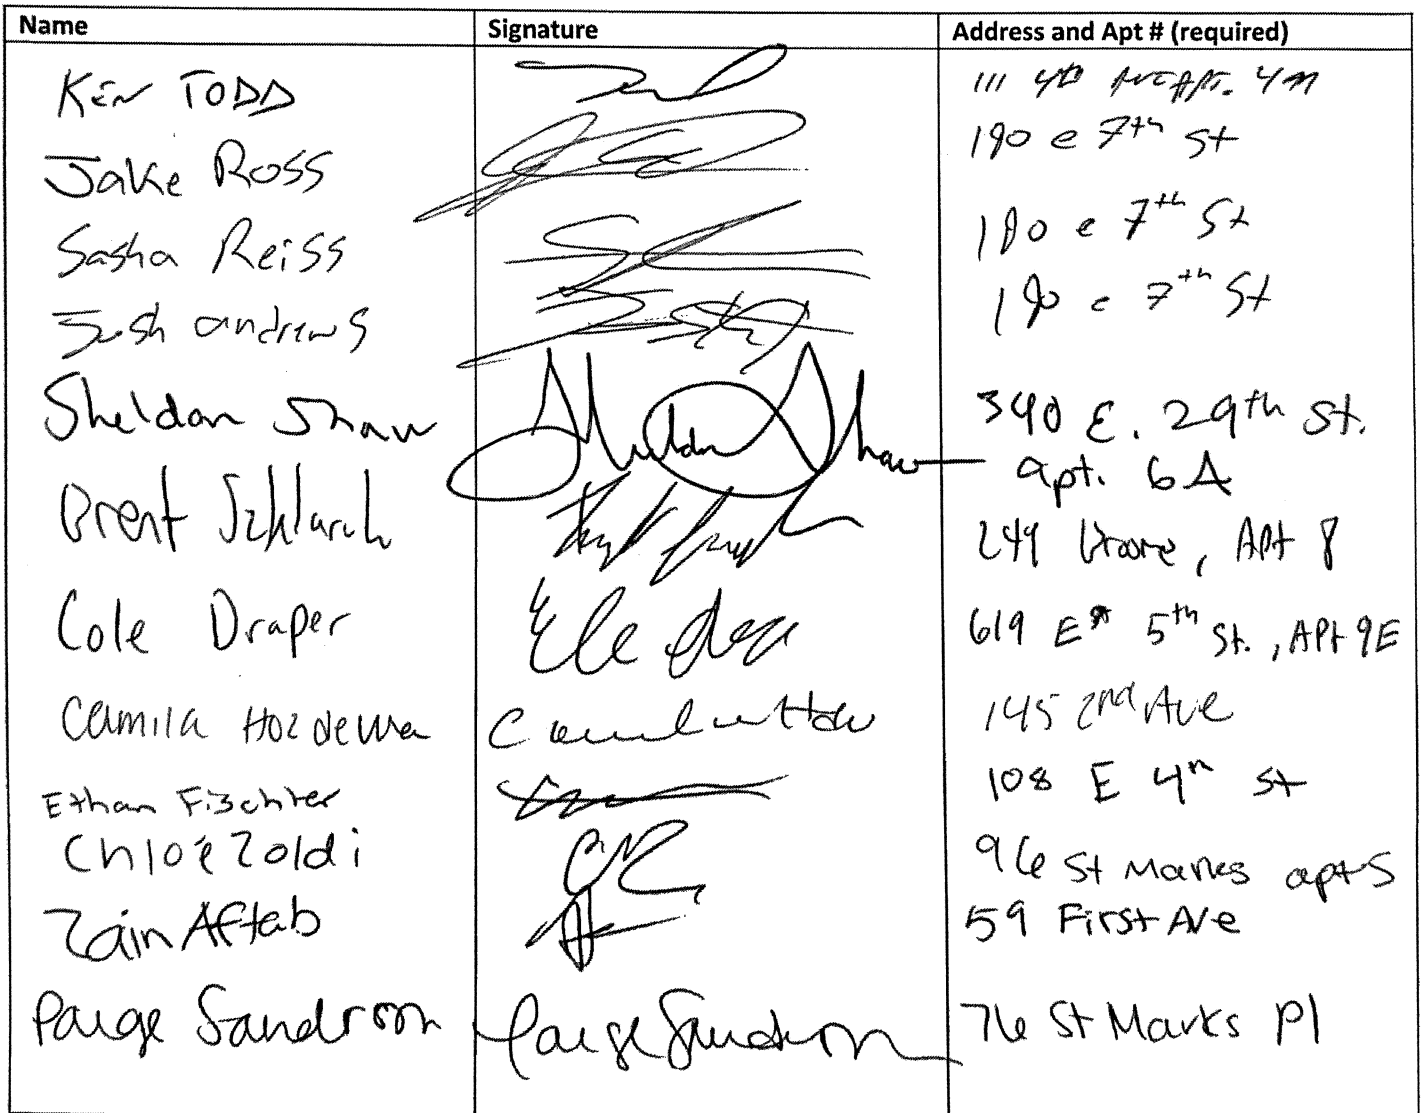 Name Signature Address and Apt # (required)
Ken TODD 111 4th Ave Apt. 4M
Jake Ross 190 e 7th St
Sasha Reiss 190 e 7th St
Josh andrews 190 e 7th St
Sheldon Shaw Sheldon Shaw 340 E. 29th St.
apt. 6A
Brent 249 , Apt 8
Cole Draper 619 E 5th St., APt 9E
Camila 145 2nd Ave
Ethan Fischter 108 E 4th St
Chloé Zoldi 96 St Marks apt 5
Zain Aftab 59 First Ave
Paige Sandrson Paige Sandrson 76 St Marks Pl